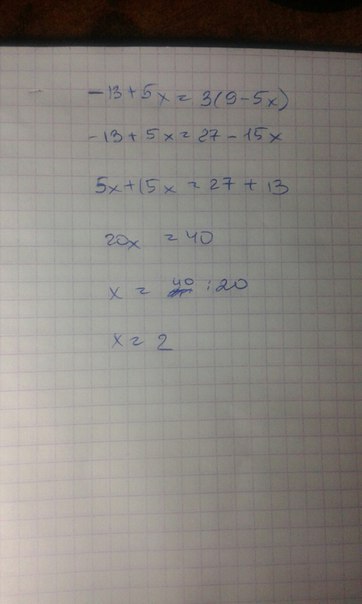 -13+5x=3(9-5x)
-13+5x=27-15x
5x+15x=27+13
20x=40
x=40:20
x=2